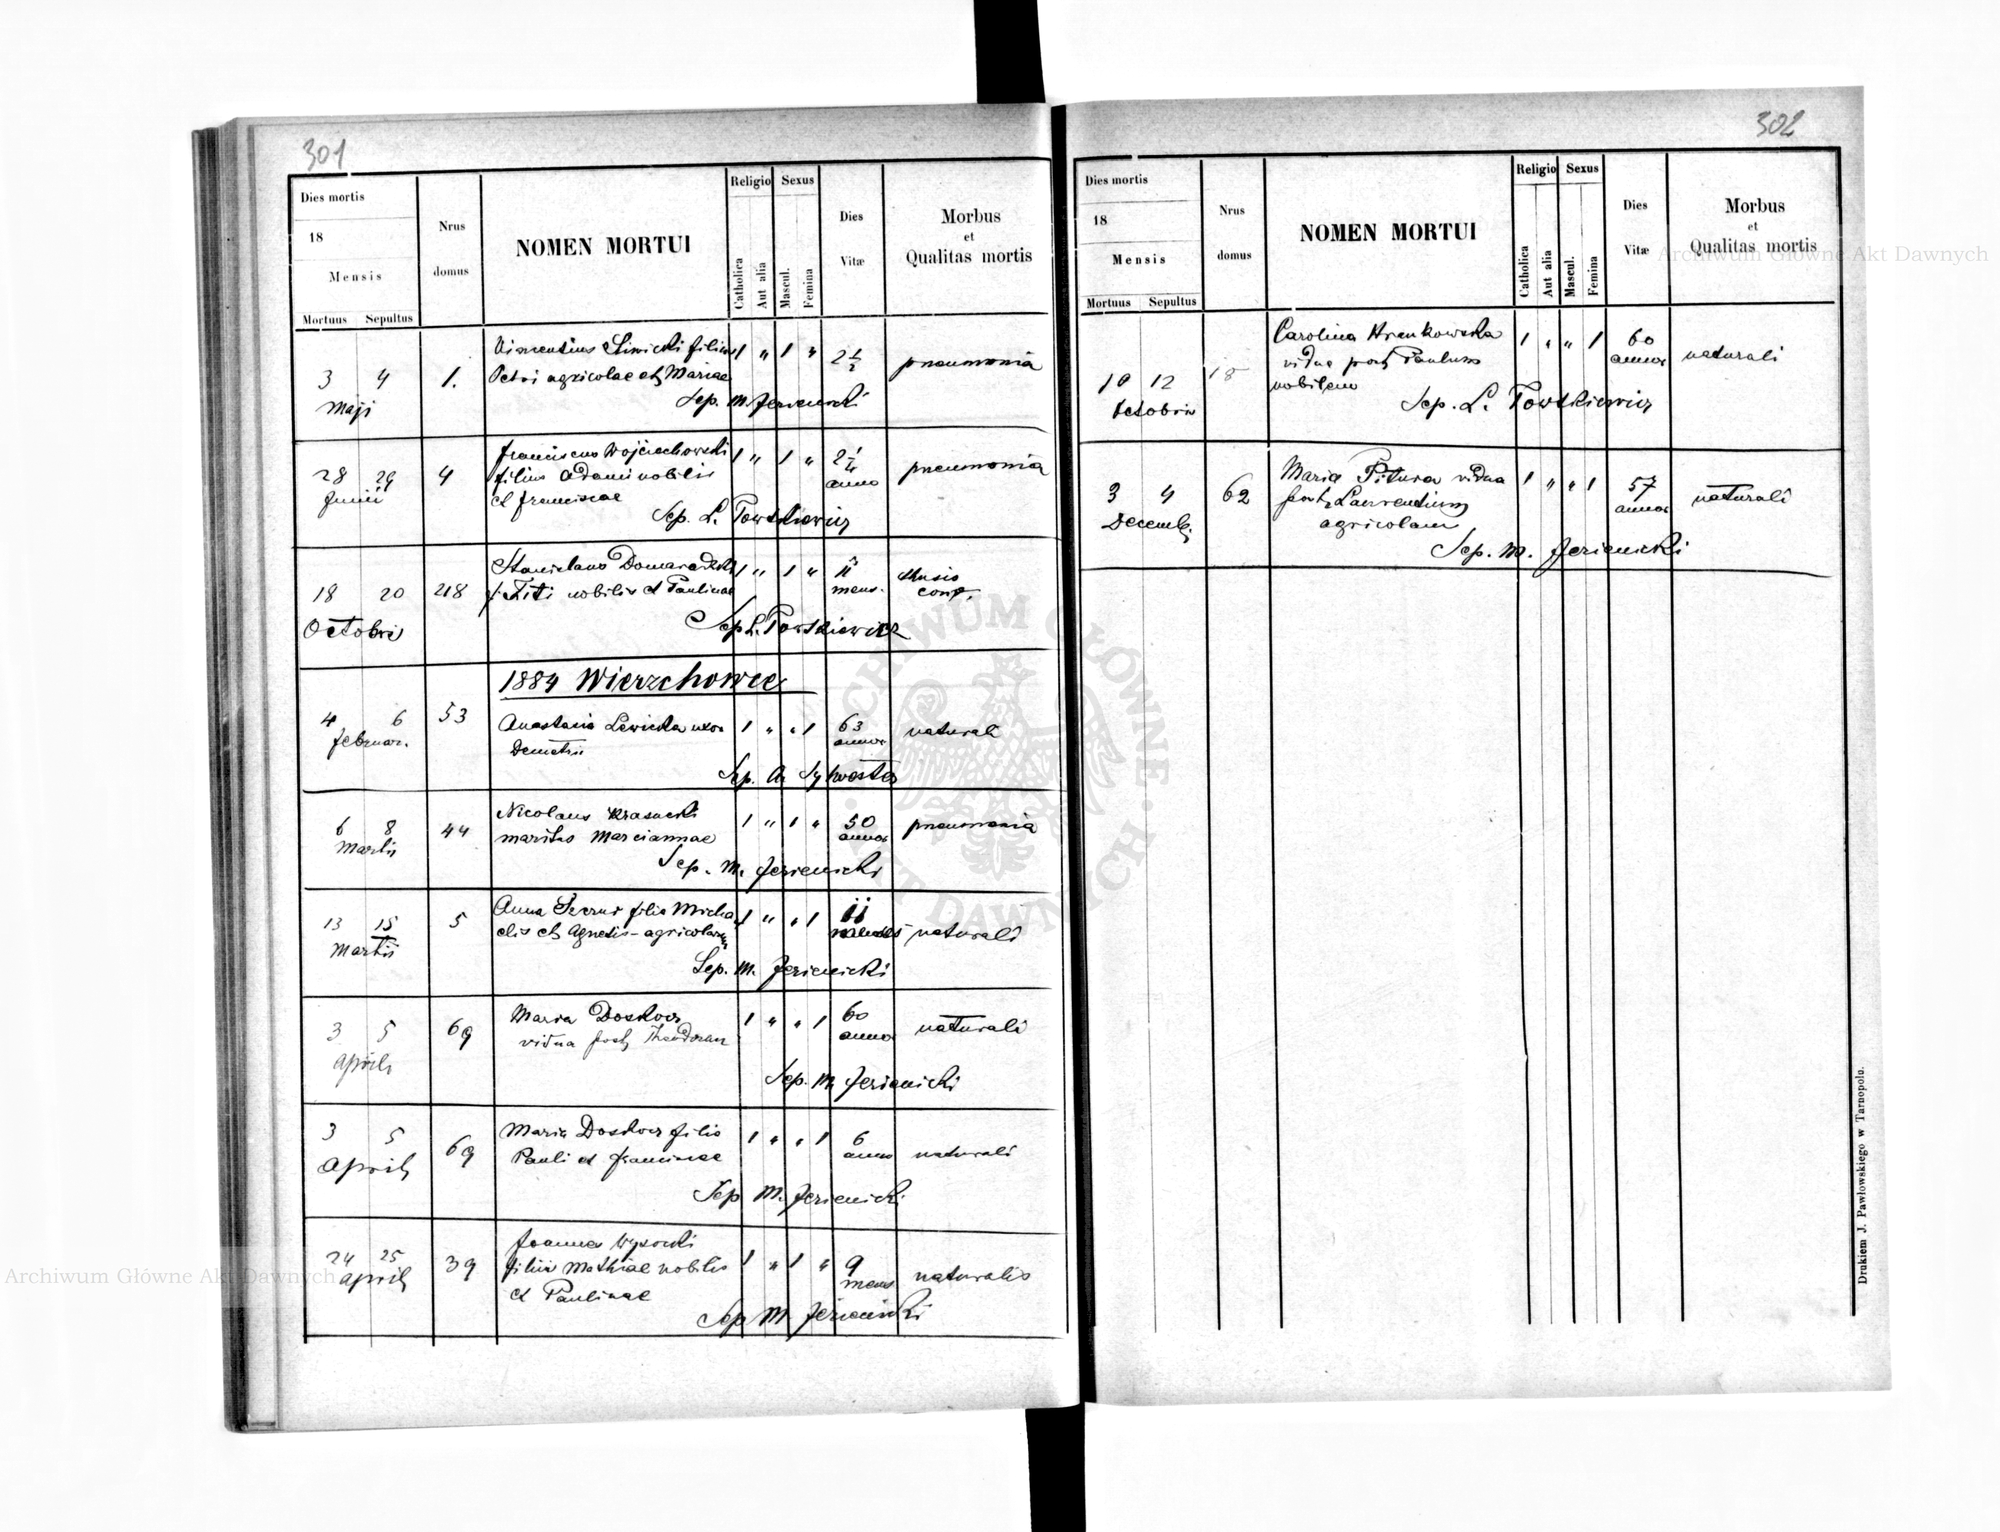 301
Dies mortis
18
Mensis
Mortuus Sepultus
Nrus
domus
NOMEN MORTUI
Religio
Catholica
Aut alia
Sexus
Mascul.
Femina
Dies
Vitæ
Morbus
et
Qualitas mortis
3 4
Maji
1.
Vincentius Sliwicki filius
Petri agricolae et Mariae
Sep. M. Jezienicki
1 " 1 "
2 1/2
pneumonia
28 29
Junii
4
Franciscus Wojciechowski
filius Adami nobilis
et Franciscae
Sep. L. Towtkiewicz
1 " 1 "
2 1/4
anno
pneumonia
18 20
Octobri
218
Stanislaus Domaradzki
f. Titi nobilis et Paulinae
Sep L. Towtkiewicz
1 " 1 "
mens.
1884 Wierzchowce
4 6
Februar.
53
Anastasia Lewicka uxor
Demetrii
Sep. A. Sylwester
1 " " 1
63
annor
naturali
6 8
Martii
44
Nicolaus Krasucki
maritus Marciannae
Sep. M. Jezienicki
1 " 1 "
50
annor
pneumonia
13 15
Martii
5
Anna filia Micha
elis et Agnetis - agricolarum
Sep. M. Jezienicki
1 " " 1
11
naturali
3 5
Aprili
69
Maria Doskocz
vidua post Theodorum
Sep. M. Jezienicki
1 " " 1
60
annor
naturali
3 5
Aprili
69
Maria Doskocz filia
Pauli et Franciscae
Sep M. Jezienicki
1 " " 1
6
anno
naturali
24 25
Aprili
39
Joannes Wysocki
filius Mathiae nobilis
et Paulinae
Sep M. Jezienicki
1 " 1 "
9
mens
naturalis
302
Dies mortis
18
Mensis
Mortuus Sepultus
Nrus
domus
NOMEN MORTUI
Religio
Catholica
Aut alia
Sexus
Mascul.
Femina
Dies
Vitæ
Morbus
et
Qualitas mortis
10 12
Octobris
18
Carolina Hrenkowska
vidua post Paulum
nobilem
Sep. L. Towtkiewicz
1 " " 1
60
annor
naturali
3 4
Decemb.
62
Maria Pitura vidua
post Laurentium
agricolam
Sep. M. Jezienicki
1 " " 1
57
annor
naturali
Drukiem J. Pawłowskiego w Tarnopolu.
Archiwum Główne Akt Dawnych
Archiwum Główne Akt Dawnych
ARCHIWUM GŁÓWNE AKT DAWNYCH